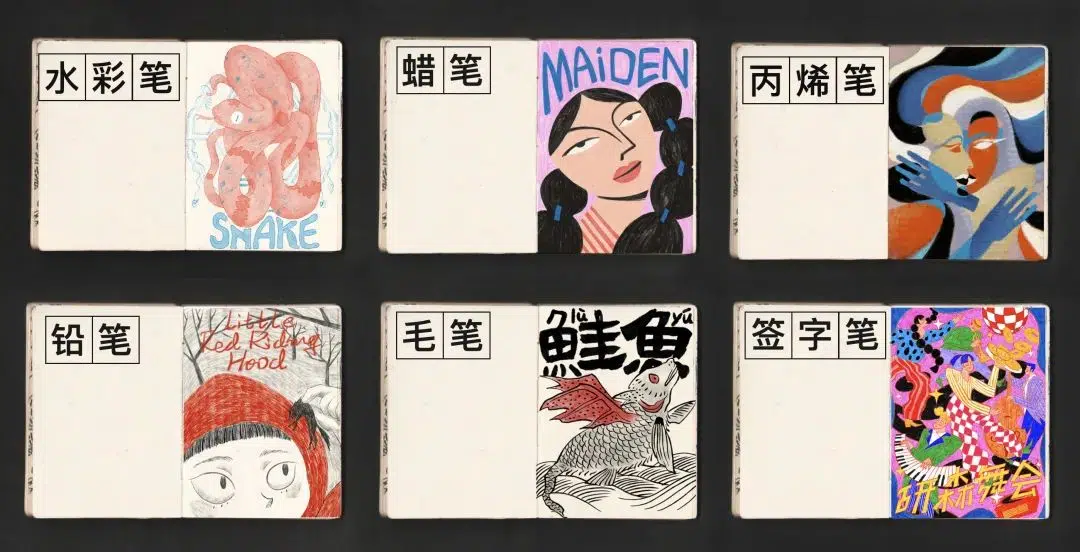 水彩笔
SNAKE
蜡笔
MAiDEN
丙烯笔
铅笔
Little
Red Riding
Hood
毛笔
鮭魚
签字笔
舞会